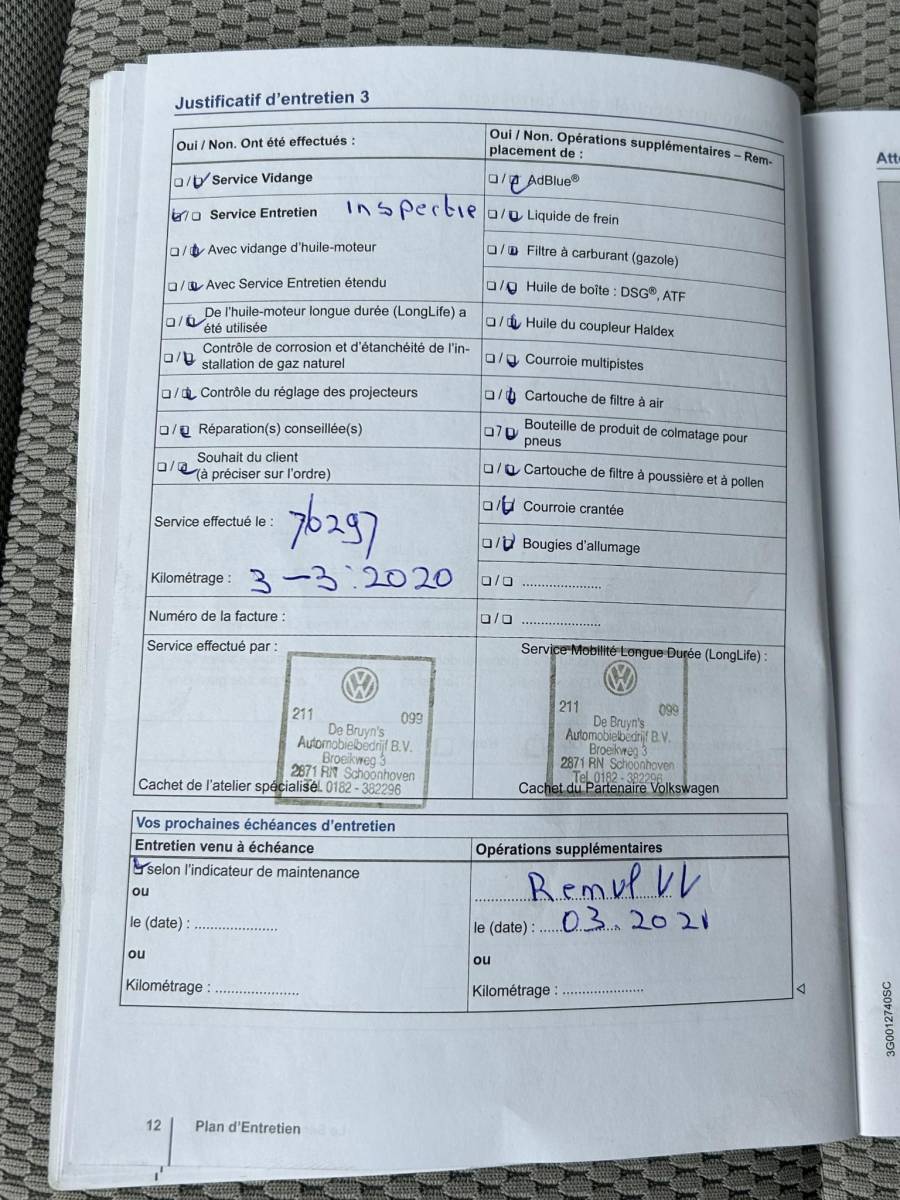 Justificatif d'entretien 3
Oui / Non. Ont été effectués :
☐ / ☑ Service Vidange
☑ / ☐ Service Entretien Inspectie
☐ / ☑ Avec vidange d'huile-moteur
☐ / ☑ Avec Service Entretien étendu
☐ / ☑ De l'huile-moteur longue durée (LongLife) a
été utilisée
☐ / ☑ Contrôle de corrosion et d'étanchéité de l'in-
stallation de gaz naturel
☐ / ☑ Contrôle du réglage des projecteurs
☐ / ☑ Réparation(s) conseillée(s)
☐ / ☑ Souhait du client
(à préciser sur l'ordre)
Service effectué le : 76297
Kilométrage : 3-3:2020
Numéro de la facture :
Service effectué par :
VW
211 099
De Bruyn's
Automobielbedrijf B.V.
Broeikweg 3
2871 RN Schoonhoven
Tel. 0182 - 382296
Cachet de l'atelier spécialisé
Oui / Non. Opérations supplémentaires – Rem-
placement de :
☐ / ☑ AdBlue®
☐ / ☑ Liquide de frein
☐ / ☑ Filtre à carburant (gazole)
☐ / ☑ Huile de boîte : DSG®, ATF
☐ / ☑ Huile du coupleur Haldex
☐ / ☑ Courroie multipistes
☐ / ☑ Cartouche de filtre à air
☐ / ☑ Bouteille de produit de colmatage pour
pneus
☐ / ☑ Cartouche de filtre à poussière et à pollen
☐ / ☑ Courroie crantée
☐ / ☑ Bougies d'allumage
☐ / ☐ ......................
☐ / ☐ ......................
Service Mobilité Longue Durée (LongLife) :
VW
211 099
De Bruyn's
Automobielbedrijf B.V.
Broeikweg 3
2871 RN Schoonhoven
Tel 0182 - 382296
Cachet du Partenaire Volkswagen
Vos prochaines échéances d'entretien
Entretien venu à échéance
☑ selon l'indicateur de maintenance
ou
le (date) : .......................
ou
Kilométrage : .......................
Opérations supplémentaires
Remvl VV
le (date) : 03. 2021
ou
Kilométrage : .......................
12
Plan d'Entretien
Att
3G0012740SC